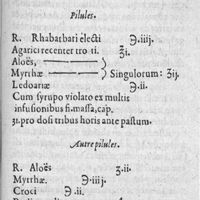 Pilules.
R. Rhabarbari electi ℈.iiij.
Agarici recenter tro ti. ʒi.
Aloës,
Myrrhæ Singulorum: ʒij.
Ledoariæ ℈.ii.
Cum syrupo violato ex multis
infusionibus fi. massa, cap.
ʒi. pro dosi tribus horis ante pastum.
Autre pilules.
R. Aloës ʒ.ii.
Myrrhæ ℈.iij.
Croci ℈.ii.